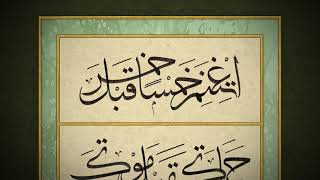 اغتنم خمسا قبل خمس
حياتك قبل موتك